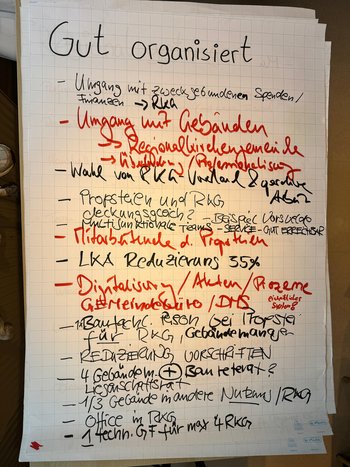 Gut organisiert
- Umgang mit zweckgebundenen Spenden/
Finanzen → RKG
- Umgang mit Gebäuden
→ Regionalkirchengemeinde
→ / Professionalisierung
- Wahl von RKG Vorstand &
- Propsteien und RKG
deckungsgleich? -
- Multifunktionale Teams - SERVICE - GUT ERREICHBAR
- Mitarbeitende d. Propsteien
- LKA Reduzierung 35%
- Digitalisierung/Akten/Prozesse
GEMeindebüro/DMS
- 1 Baufachl. Person bei Propstei
für RKG, Gebäudemanagem
- REDUZIERUNG VORSCHRIFTEN
- 4 Gebäudem. + Baureferat?
- 1/3 Gebäude in andere Nutzung/RKG
- Office in RKG
- 1 techn. GF für max 4 RKG